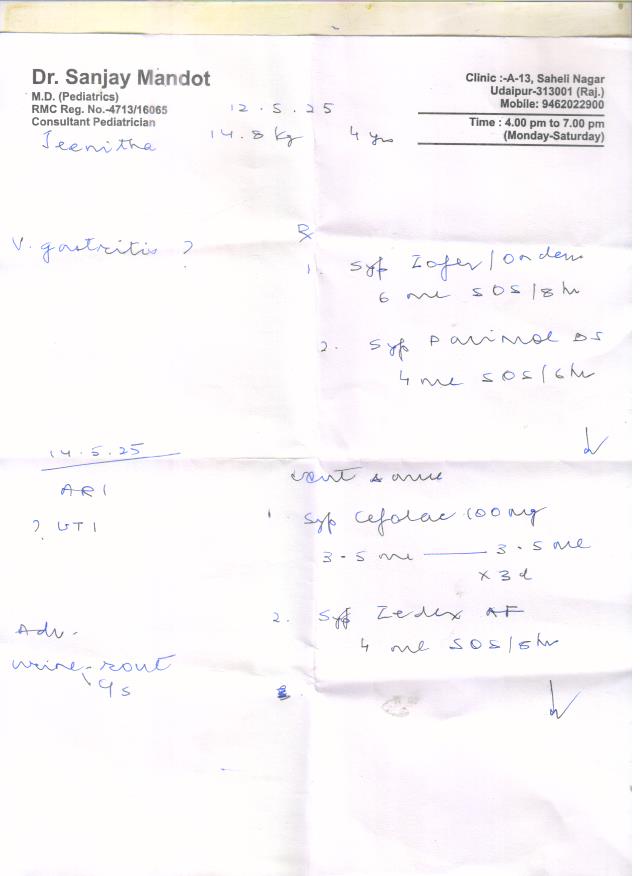 Dr. Sanjay Mandot
M.D. (Pediatrics)
RMC Reg. No.-4713/16065
Consultant Pediatrician
Clinic :-A-13, Saheli Nagar
Udaipur-313001 (Raj.)
Mobile: 9462022900
Time : 4.00 pm to 7.00 pm
(Monday-Saturday)
12.5.25
Jeenitha 14.8 kg 4 yrs
V. gastritis ?
Rx
1. Syp Zofer/Ondem
6 ml SOS/8 hr
2. Syp Parimol DS
4 ml SOS/6hr
14.5.25
ARI
? UTI
cont same
1. Syp Cefolac 100 mg
3.5 ml — 3.5 ml
x 3d
2. Syp Zedex AF
4 ml SOS/8hr
Adv.
urine-rout